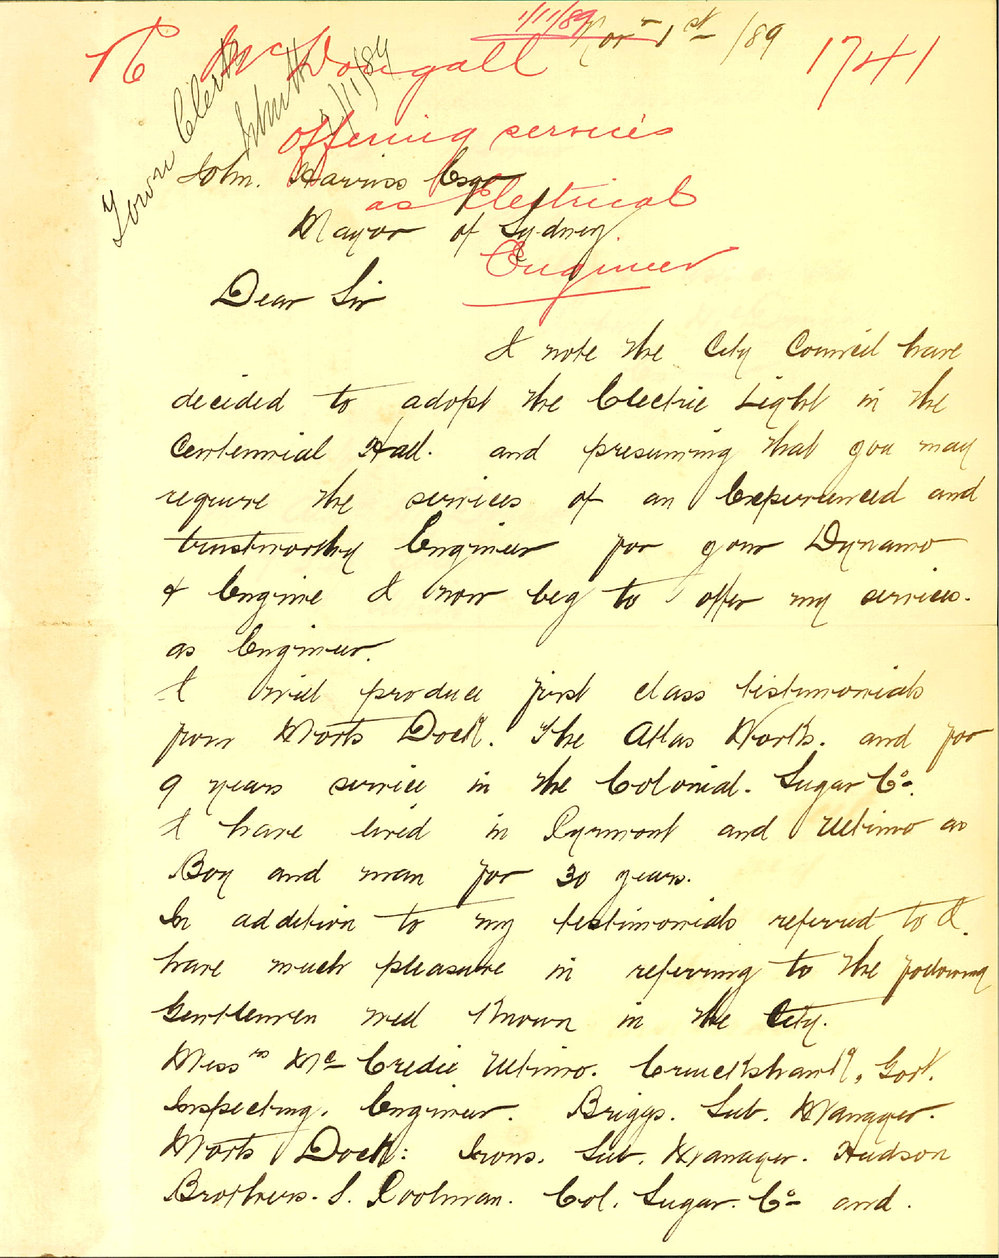 1/11/89 Novr 1st /89
R McDougall 1741
Offering services
as Electrical
Engineer
Town Clerk
1/11/89
John. Harriss Esqr
Mayor of Sydney.
Dear Sir
I note the City Council have
decided to adopt the Electric Light in the
Centennial Hall. and presuming that you may
require the services of an Experienced and
trustworthy Engineer for your Dynamo
& Engine I now beg to offer my services.
as Engineer.
I will produce first class testimonials
from Morts Dock. The Atlas Works. and for
9 years service in the Colonial. Sugar Co.
I have lived in Pyrmont and Ultimo as
Boy and man for 30 years.
In addition to my testimonials referred to I.
have much pleasure in referring to the following
Gentlemen well Known in the City.
Messrs Mc Credie Ultimo. Cruickshank, Govt.
Inspecting. Engineer. Briggs. Sub. Manager.
Morts Dock: Irons. Sub. Manager. Hudson
Brothers. S. Poolman. Col. Sugar. Co and.